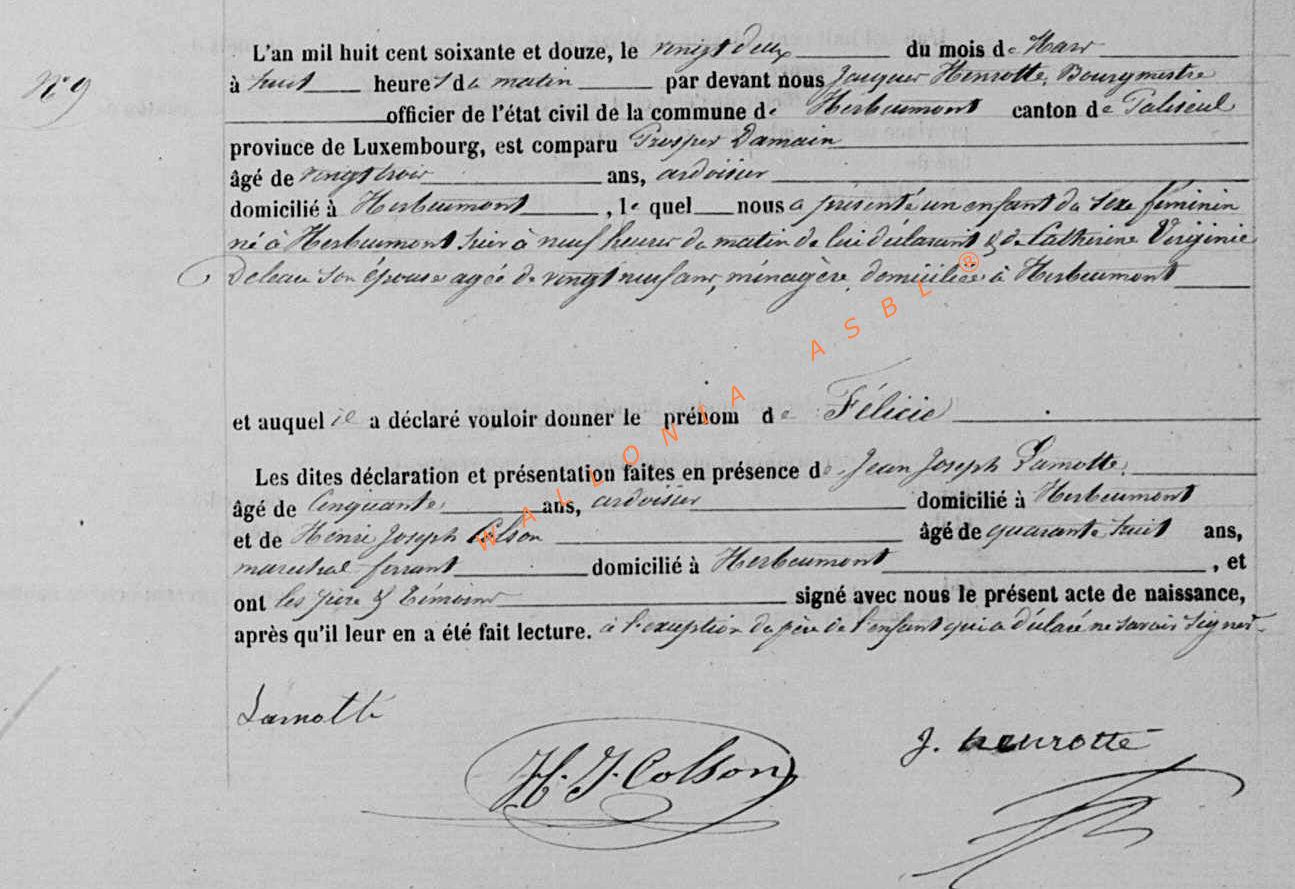 N° 9
L'an mil huit cent soixante et douze, le vingt deux du mois de Mars
à huit heures du matin par devant nous Jacques Henrotte, Bourgmestre
officier de l'état civil de la commune de Herbeumont canton de Paliseul
province de Luxembourg, est comparu Prosper Damain
âgé de vingt trois ans, ardoisier
domicilié à Herbeumont, le quel nous a présenté un enfant du sexe féminin
né à Herbeumont hier à neuf heures du matin de lui déclarant & de Catherine Virginie
Deleau son épouse agée de vingt neuf ans, ménagère, domiciliée à Herbeumont
et auquel il a déclaré vouloir donner le prénom de Félicie
Les dites déclaration et présentation faites en présence de Jean Joseph Lamotte,
âgé de Cinquante ans, ardoisier domicilié à Herbeumont
et de Henri Joseph Colson âgé de quarante huit ans,
maréchal ferrant domicilié à Herbeumont, et
ont les père & témoins signé avec nous le présent acte de naissance,
après qu'il leur en a été fait lecture. à l'exception du père de l'enfant qui a déclaré ne savoir signer.
Lamotte
H. J. Colson
J. henrotte
WALLONIA ASBL ®